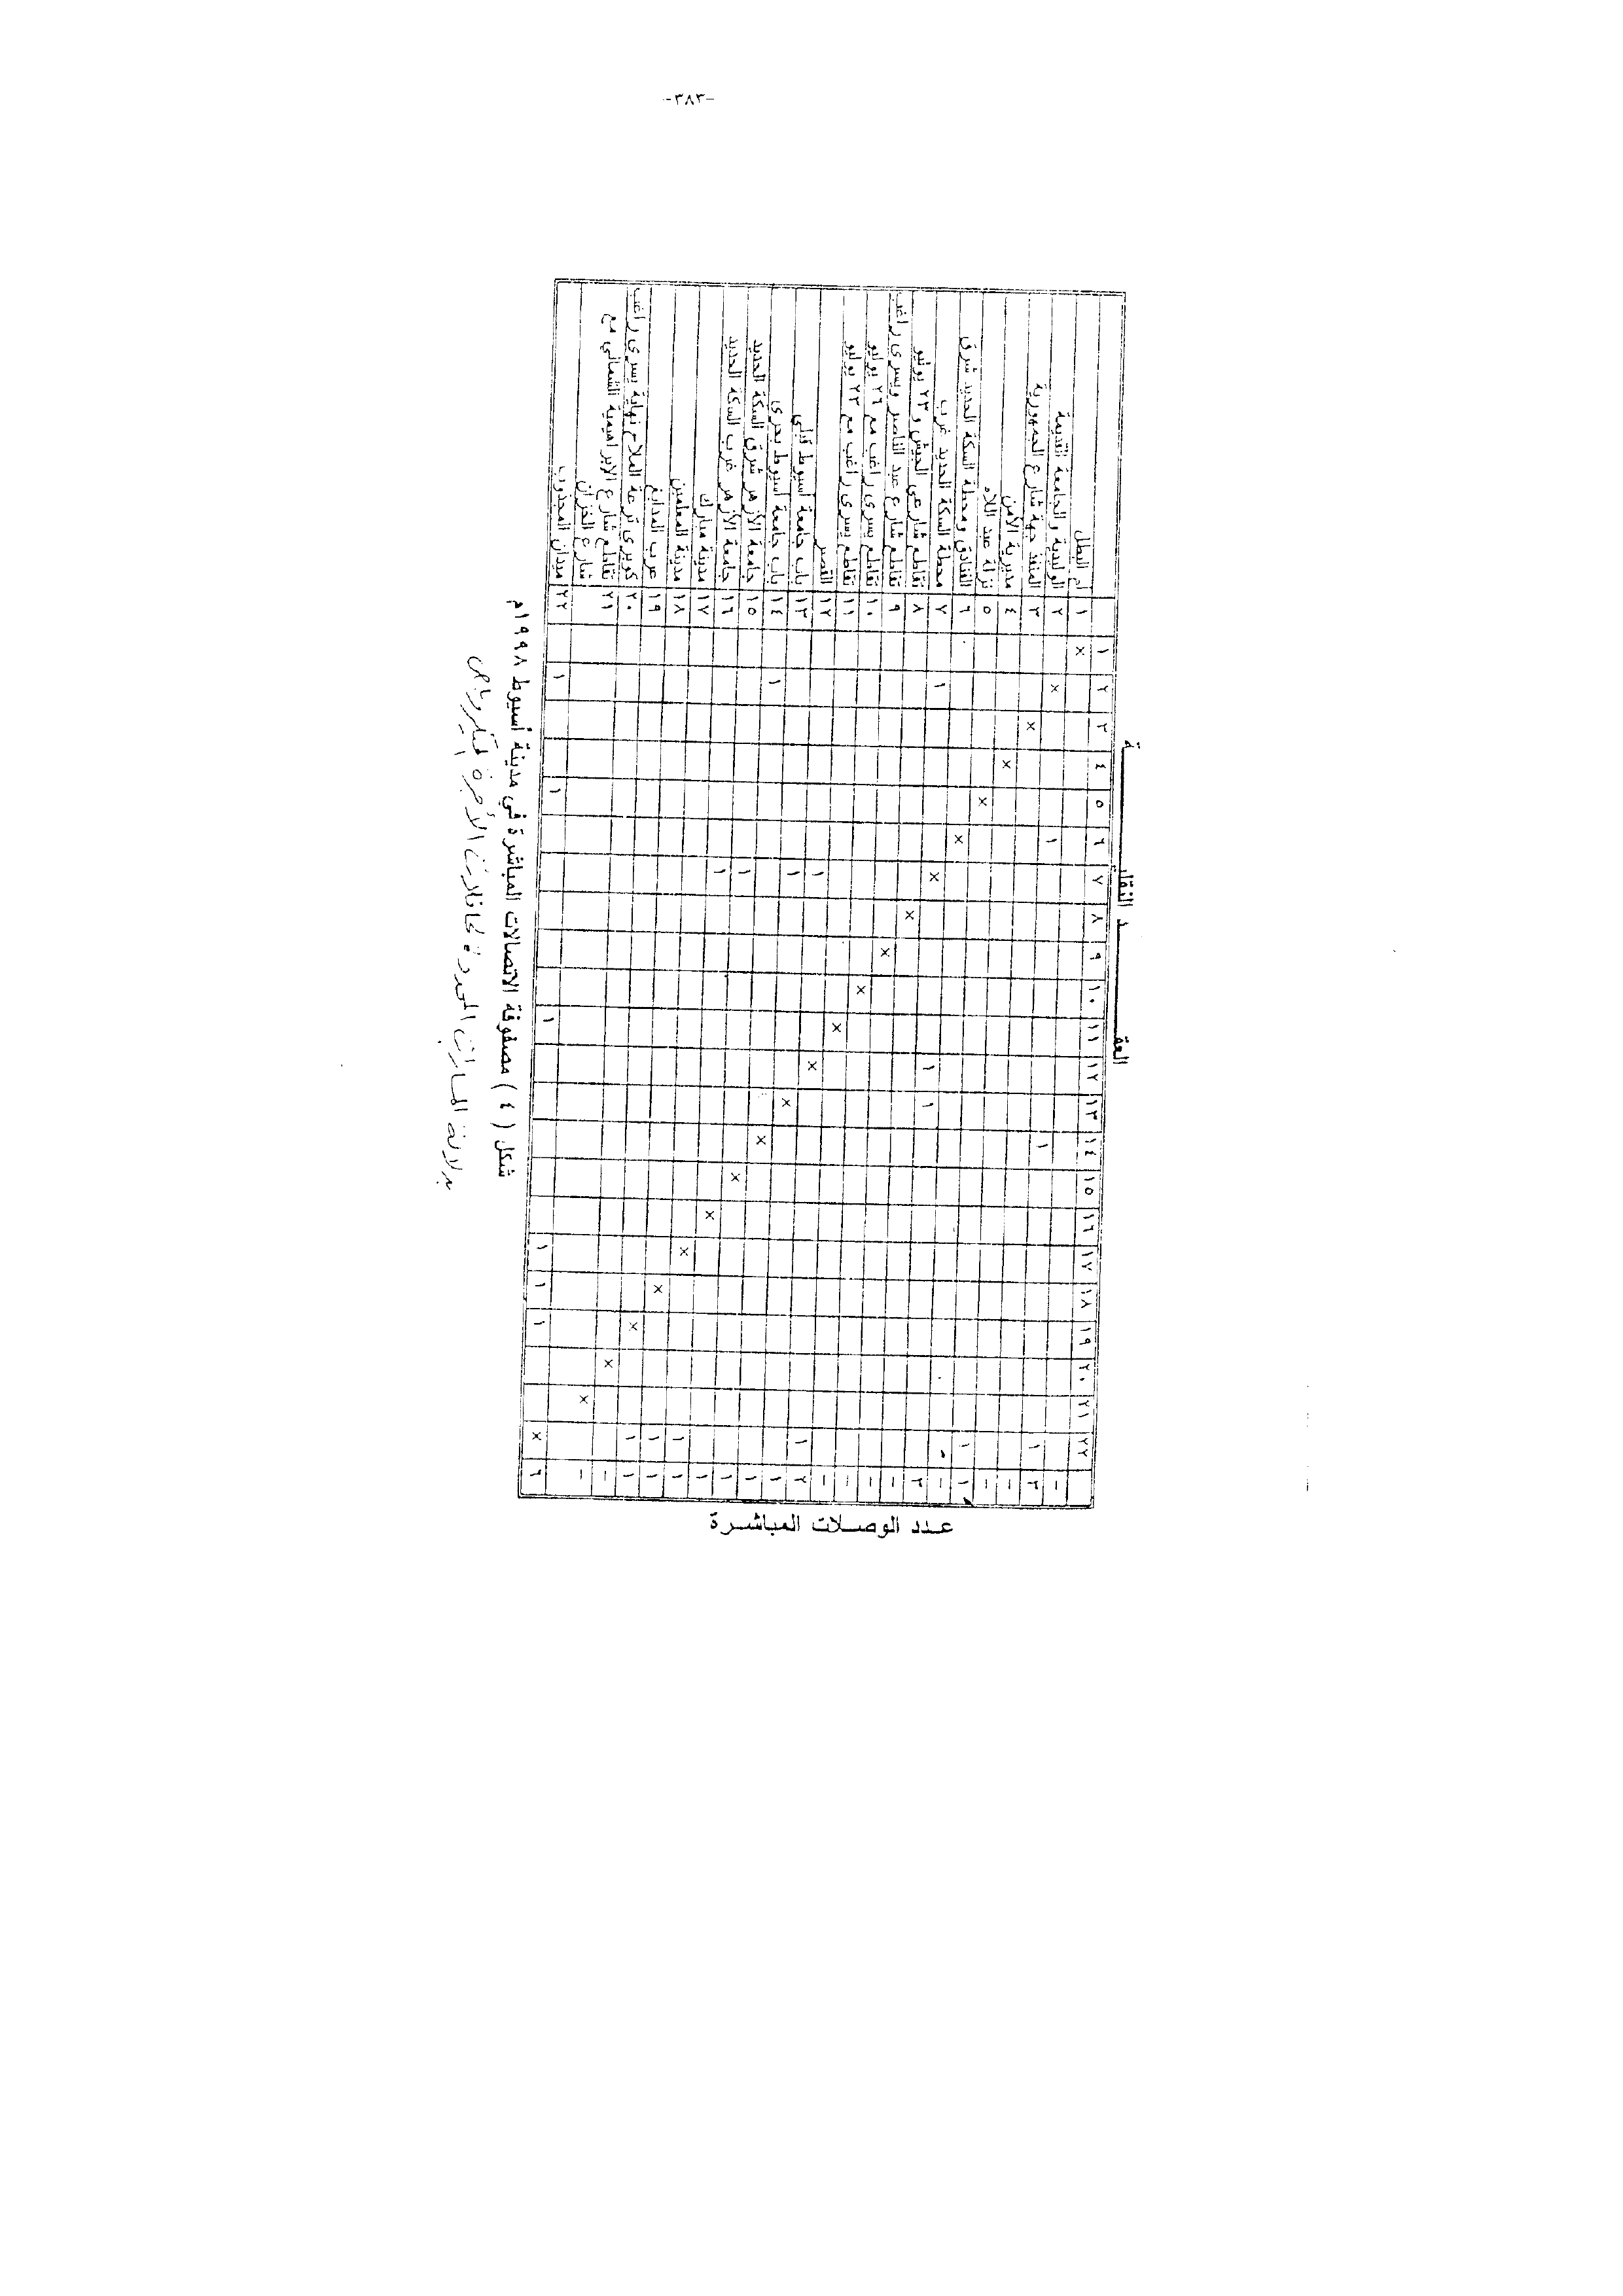 -٣٨٣-
العقــــد النقليــــة
١ ٢ ٣ ٤ ٥ ٦ ٧ ٨ ٩ ١٠ ١١ ١٢ ١٣ ١٤ ١٥ ١٦ ١٧ ١٨ ١٩ ٢٠ ٢١ ٢٢
أم البطل ١ ×
الوليدية والجامعة القديمة ٢ × ١ ١
المنفذ جهة شارع الجمهورية ٣ ×
مديرية الأمن ٤ ×
نزلة عبد اللاه ٥ ×
الفنادق ومحطة السكة الحديد شرق ٦ ×
محطة السكة الحديد غرب ٧ ١ × ١ ١
تقاطع شارعي الجيش و٢٣ يوليو ٨ ×
تقاطع شارع عبد الناصر ويسرى راغب ٩ ×
تقاطع يسرى راغب مع ٢٦ يوليو ١٠ ×
تقاطع يسرى راغب مع ٢٣ يوليو ١١ ×
القصر ١٢ ١ ×
باب جامعة أسيوط قبلى ١٣ ١ ×
باب جامعة أسيوط بحرى ١٤ ١ ×
جامعة الأزهر شرق السكة الحديد ١٥ ١ ×
جامعة الأزهر غرب السكة الحديد ١٦ ١ ×
مدينة مبارك ١٧ ×
مدينة المعلمين ١٨ ×
عرب المدابغ ١٩ ×
كوبرى ترعة الملاح نهاية يسرى راغب ٢٠ ×
تقاطع شارع الإبراهيمية الشمالي مع شارع الخزان ٢١ ×
ميدان المجذوب ٢٢ ١ ١ ١ ١ ١ ١ × ٦
عـدد الوصـلات المباشـرة
شكل ( ٤ ) مصفوفة الاتصالات المباشرة في مدينة أسيوط ١٩٩٨م
بدلالة المسارات المحددة لحافلات الأجرة الميكروباص